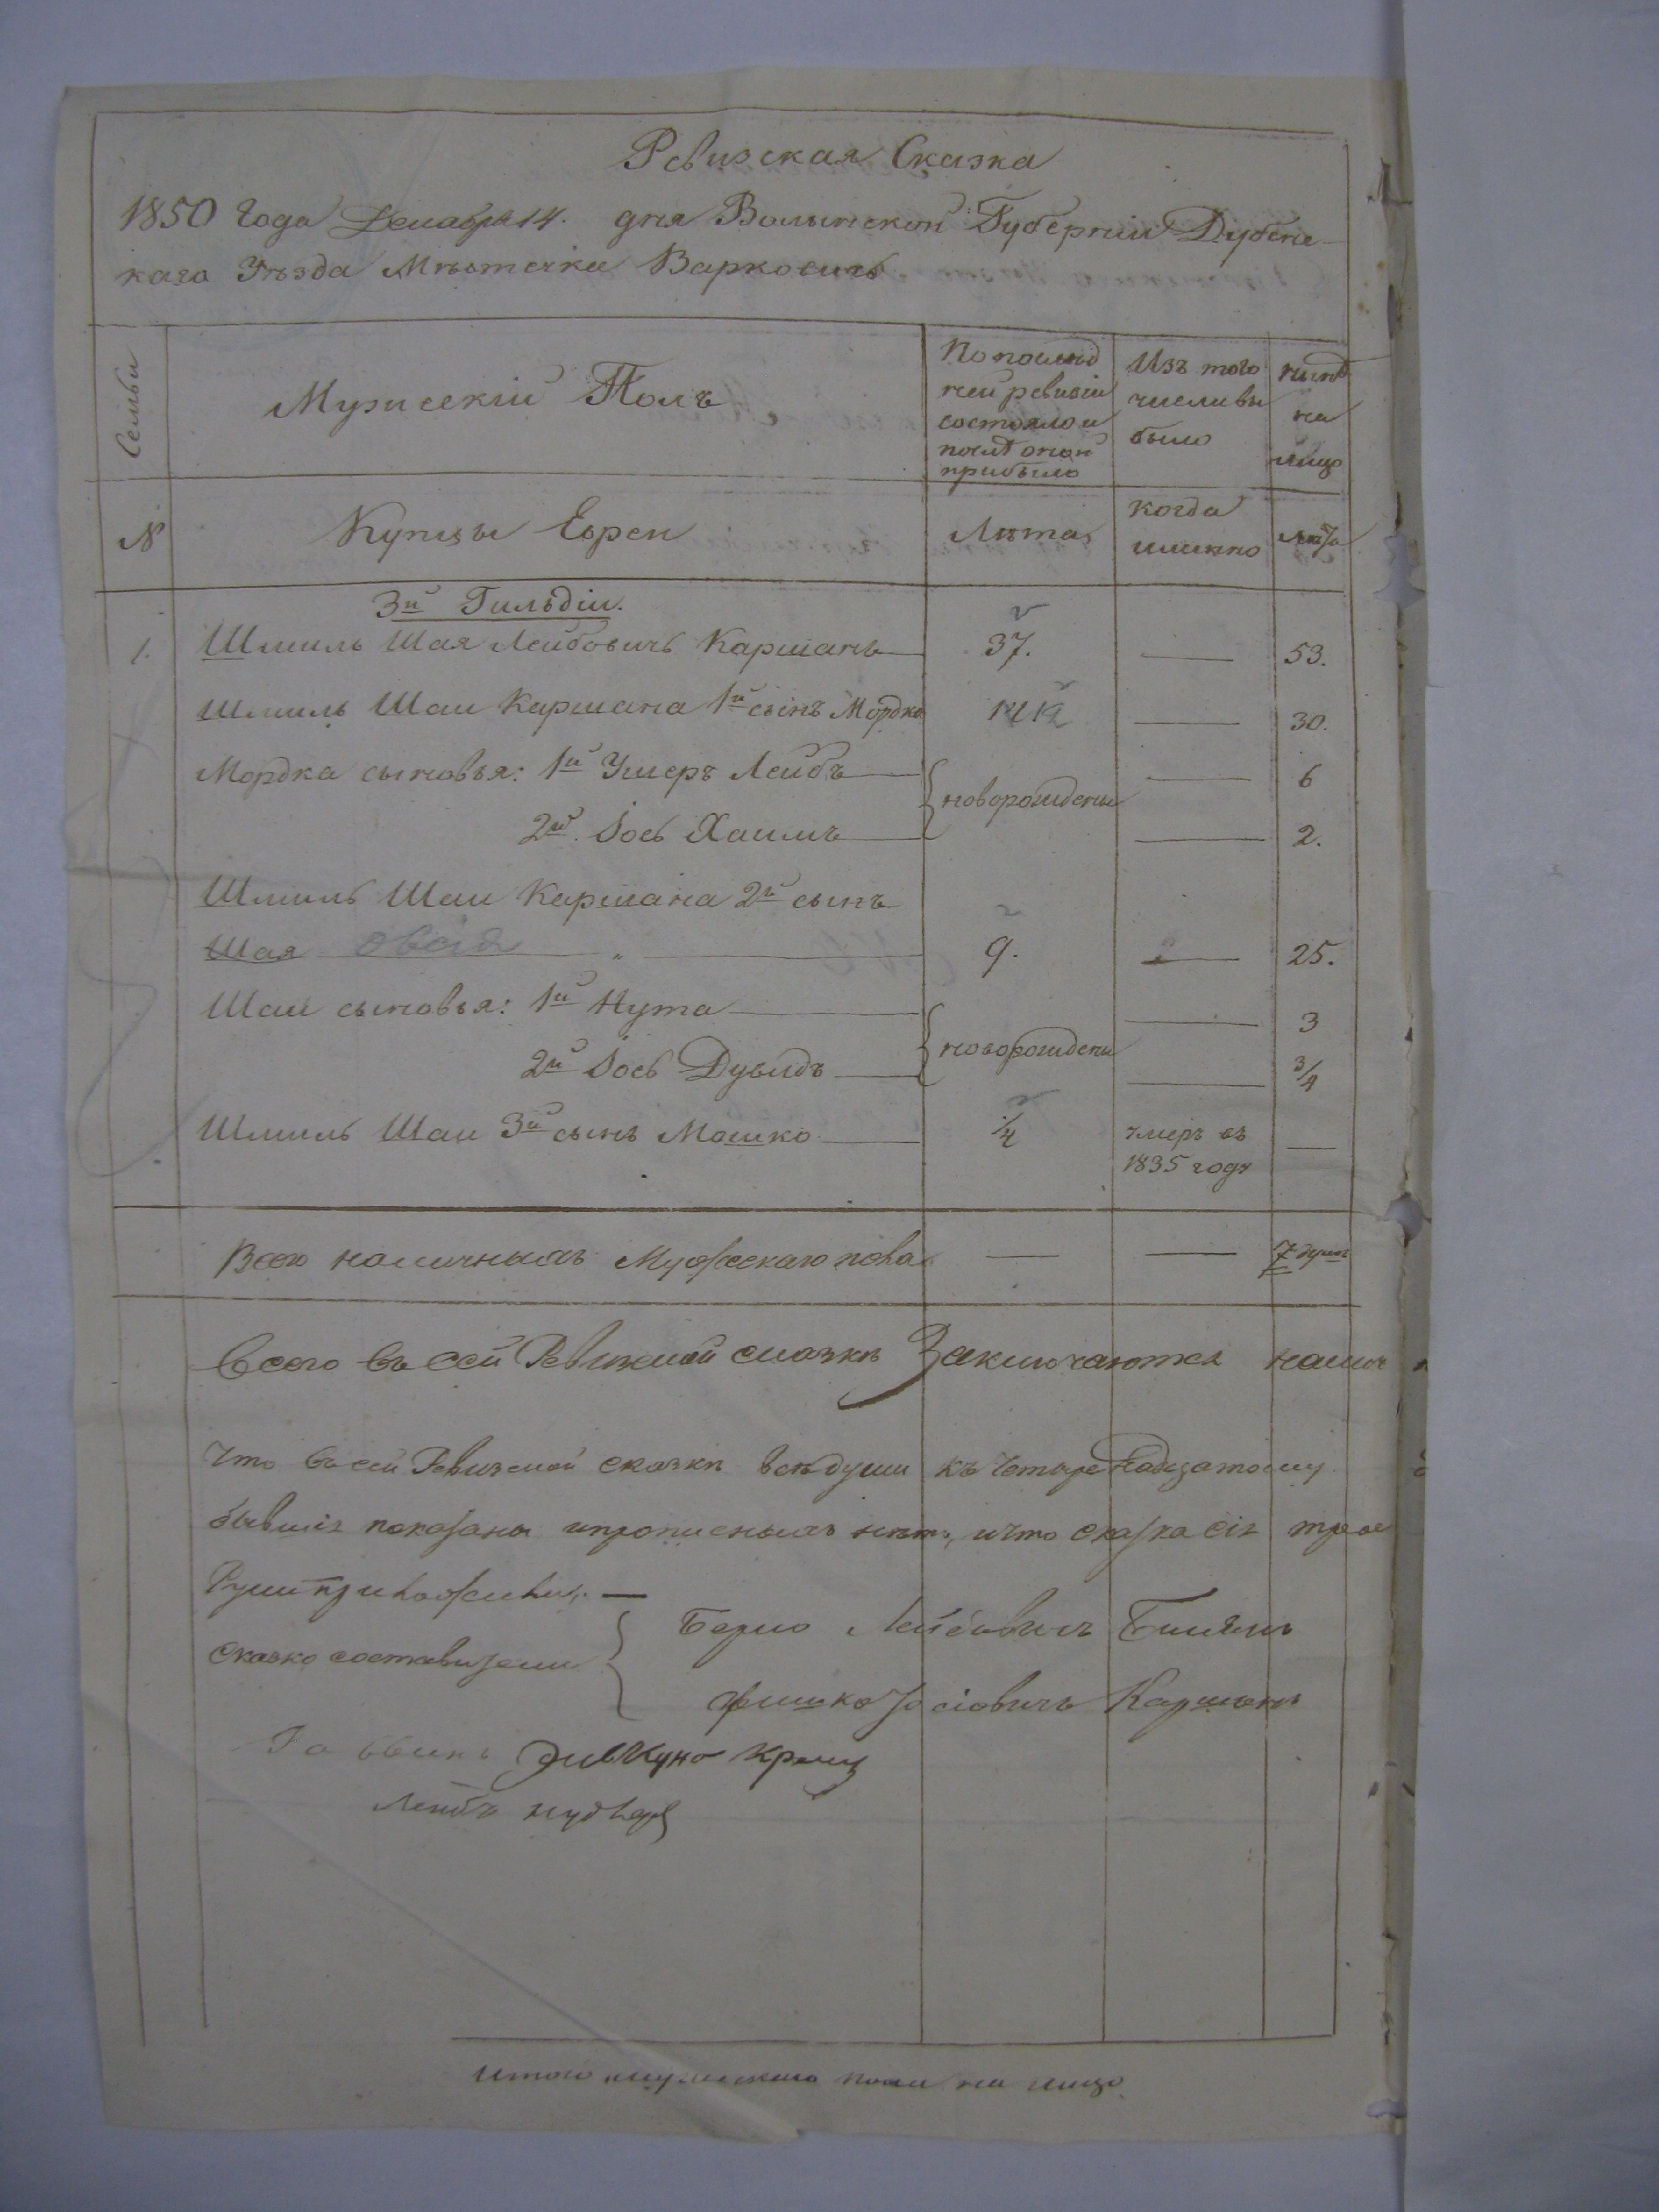 Ревизская Сказка
1850 Года Декабря 14. дня Волынской Губернии Дубенс-
каго Уѣзда Мѣстечка Варковичъ
Семьи
Мужеский Полъ
По послѣд
ней ревизіи
состояло и
послѣ оной
прибыло
Изъ того
числа вы
было
нынѣ
на
лицо
№
Купцы Евреи
Лѣта
когда
именно
Лѣта
3й Гильдіи.
1. Шмиль Шая Лейбовичъ Каршанъ 37. 53.
Шмиль Шаи Каршана 1й сынъ Мордко 12 30.
Мордка сыновья: 1й Ушеръ Лейбъ новорождены 6
2й Іось Хаимъ 2.
Шмиль Шаи Каршана 2й сынъ
Шая Овсій 9. 25.
Шаи сыновья: 1й Нута новорождены 3
2й Іось Дувидъ 3/4
Шмиль Шаи 3й сынъ Мошко 1/4 умеръ въ
1835 году
Всего наличныхъ Мужескаго пола 7 душъ
Всего въ сей Ревизской сказкѣ Заключаются налич
Что въ сей Ревизской сказкѣ всѣ души къ Четырнадцатому
бывшіе показаны и прописныхъ нѣтъ, и что сказка сія
Руки приложили. —
Сказко составители Берко Лейбовичъ
Фишко Іосіовичъ Каршанъ
Лейбъ
Итого мужескаго пола на лицо